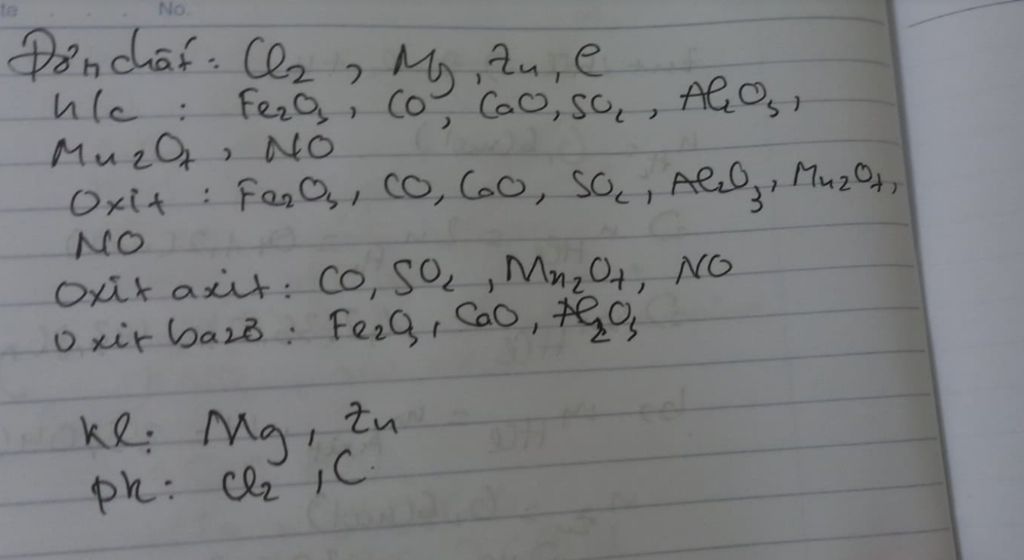 te No.
Đơn chất: Cl2, Mg, Zn, C
h/c : Fe2O3, CO, CaO, SO2, Al2O3,
Mn2O7, NO
Oxit : Fe2O3, CO, CaO, SO2, Al2O3, Mn2O7,
NO
Oxit axit: CO, SO2, Mn2O7, NO
Oxit bazơ: Fe2O3, CaO, Al2O3
kl: Mg, Zn
pk: Cl2, C